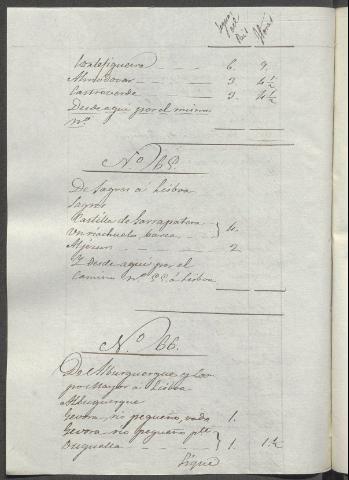 Valefiguera 6. 9.
Almodovar 3. 4 1/2
Castroverde 3. 4 1/2
Desde aqui por el mismo
nº.
Nº. 65.
De Sagres á Lisboa
Sagres
Castillo de Garrapatera
Un riachuelo, barca } 4.
Aljezur 2
Y desde aqui por el
camino nº. 59 á Lisboa
Nº. 66.
De Alburquerque y Cam
po Mayor á Lisboa
Alburquerque
Gevora, rio pequeño, vado 1.
Gevora rio pequeño pte
Ouguella } 1. 1 1/2
Sigue